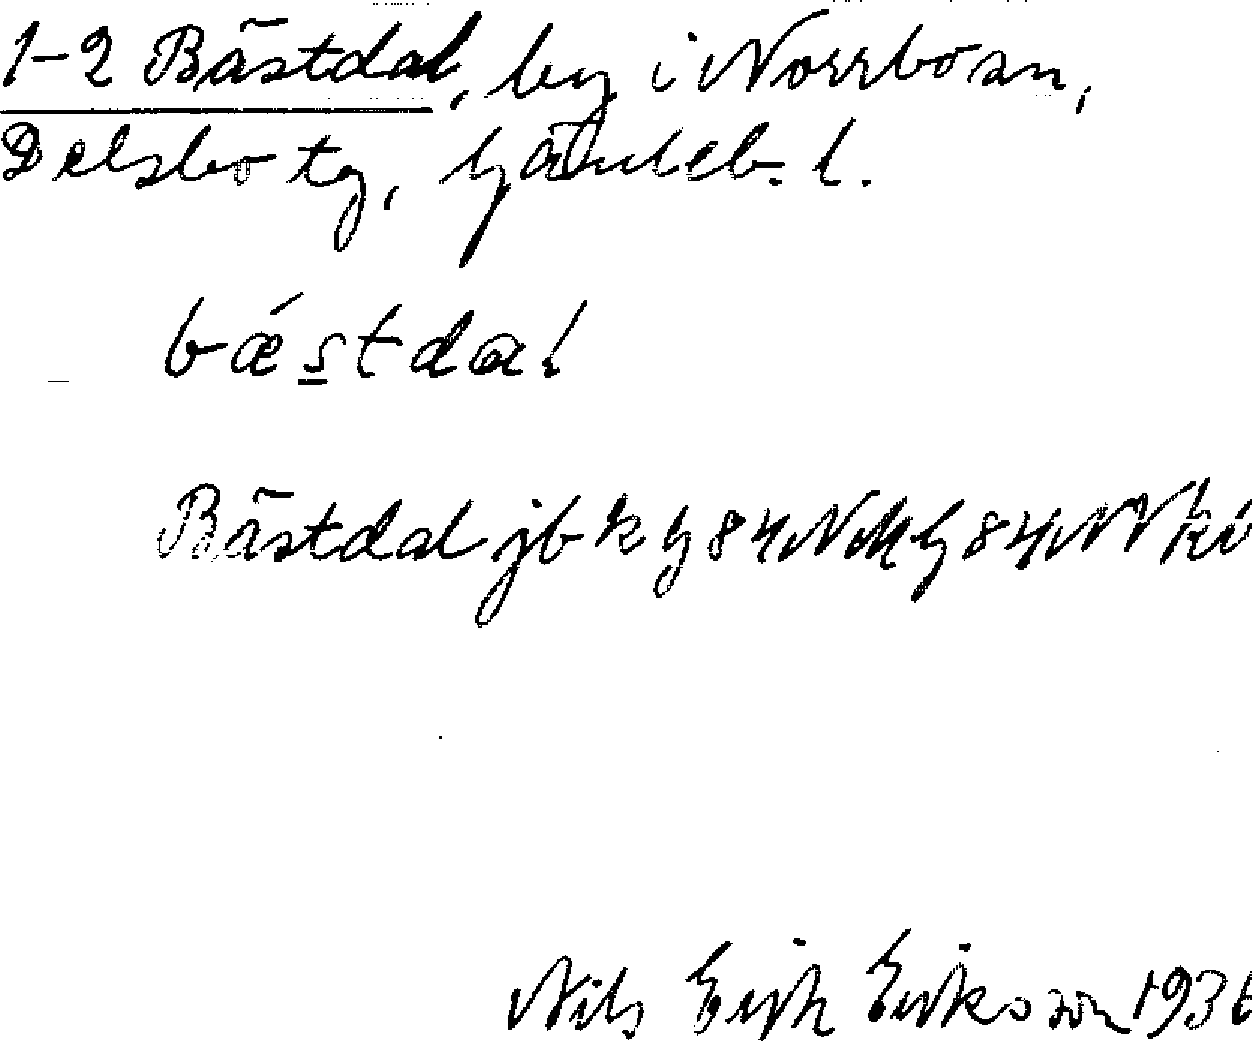 1-2 Bästdal, by i Norrbo sn,
Delsbo tg, Gävleb. l.
bǽstdal
Bästdal jb k G 84 NV k G 84 NV ki
Nils Erik Eriksson 193